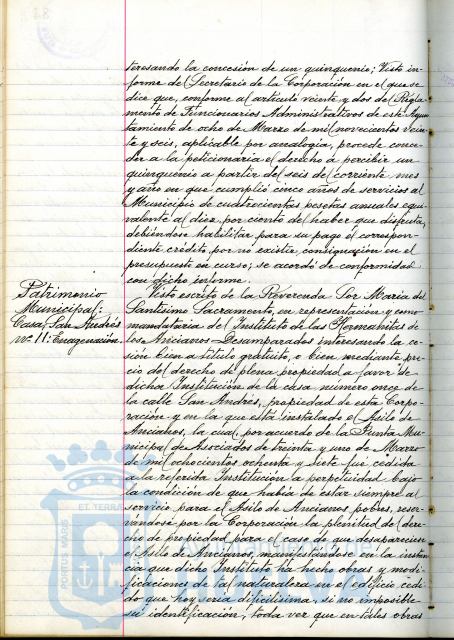 teresando la concesión de un quinquenio; Visto in-
forme del Secretario de la Corporación en el que se
dice que, conforme al artículo veinte y dos del Regla-
mento de Funcionarios Administrativos de este Ayun-
tamiento de ocho de Marzo de mil novecientos vein-
te y seis, aplicable por analogía, procede conce-
der a la peticionaria el derecho a percibir un
quinquenio a partir del seis del corriente mes
y año en que cumplió cinco años de servicios al
Municipio de cuatrocientas pesetas anuales equi-
valente al diez por ciento del haber que disfruta,
debiéndose habilitar para su pago el correspon-
diente crédito, por no existir consignación en el
presupuesto en curso; se acordó de conformidad
con dicho informe.
Patrimonio
Municipal:
Casa San Andrés
nº 11: Enagenación.
Visto escrito de la Reverenda Sor Maria del
Santísimo Sacramento, en representación y como
mandataria del Instituto de las Hermanitas de
los Ancianos Desamparados interesando la ce-
sión bien a título gratuito, o bien mediante pre-
cio del derecho de plena propiedad a favor de
dicha Institución de la casa número once de
la calle San Andrés, propiedad de esta Corpo-
ración y en la que está instalado el Asilo de
Ancianos, la cual, por acuerdo de la Junta Mu-
nicipal de Asociados de treinta y uno de Marzo
de mil ochocientos ochenta y siete fué cedida
a la referida Institución a perpetuidad bajo
la condición de que había de estar siempre al
servicio para el Asilo de Ancianos pobres, reser-
vándose por la Corporación la plenitud del dere-
cho de propiedad para el caso de que desapareciese
el Asilo de Ancianos, manifestándose en la instan-
cia que dicho Instituto ha hecho obras y modi-
ficaciones de tal naturaleza en el edificio cedi-
do que hoy seria dificilísima, si no imposible
su identificación, toda vez que en tales obras
PORTUS MARIS
ET TERRA